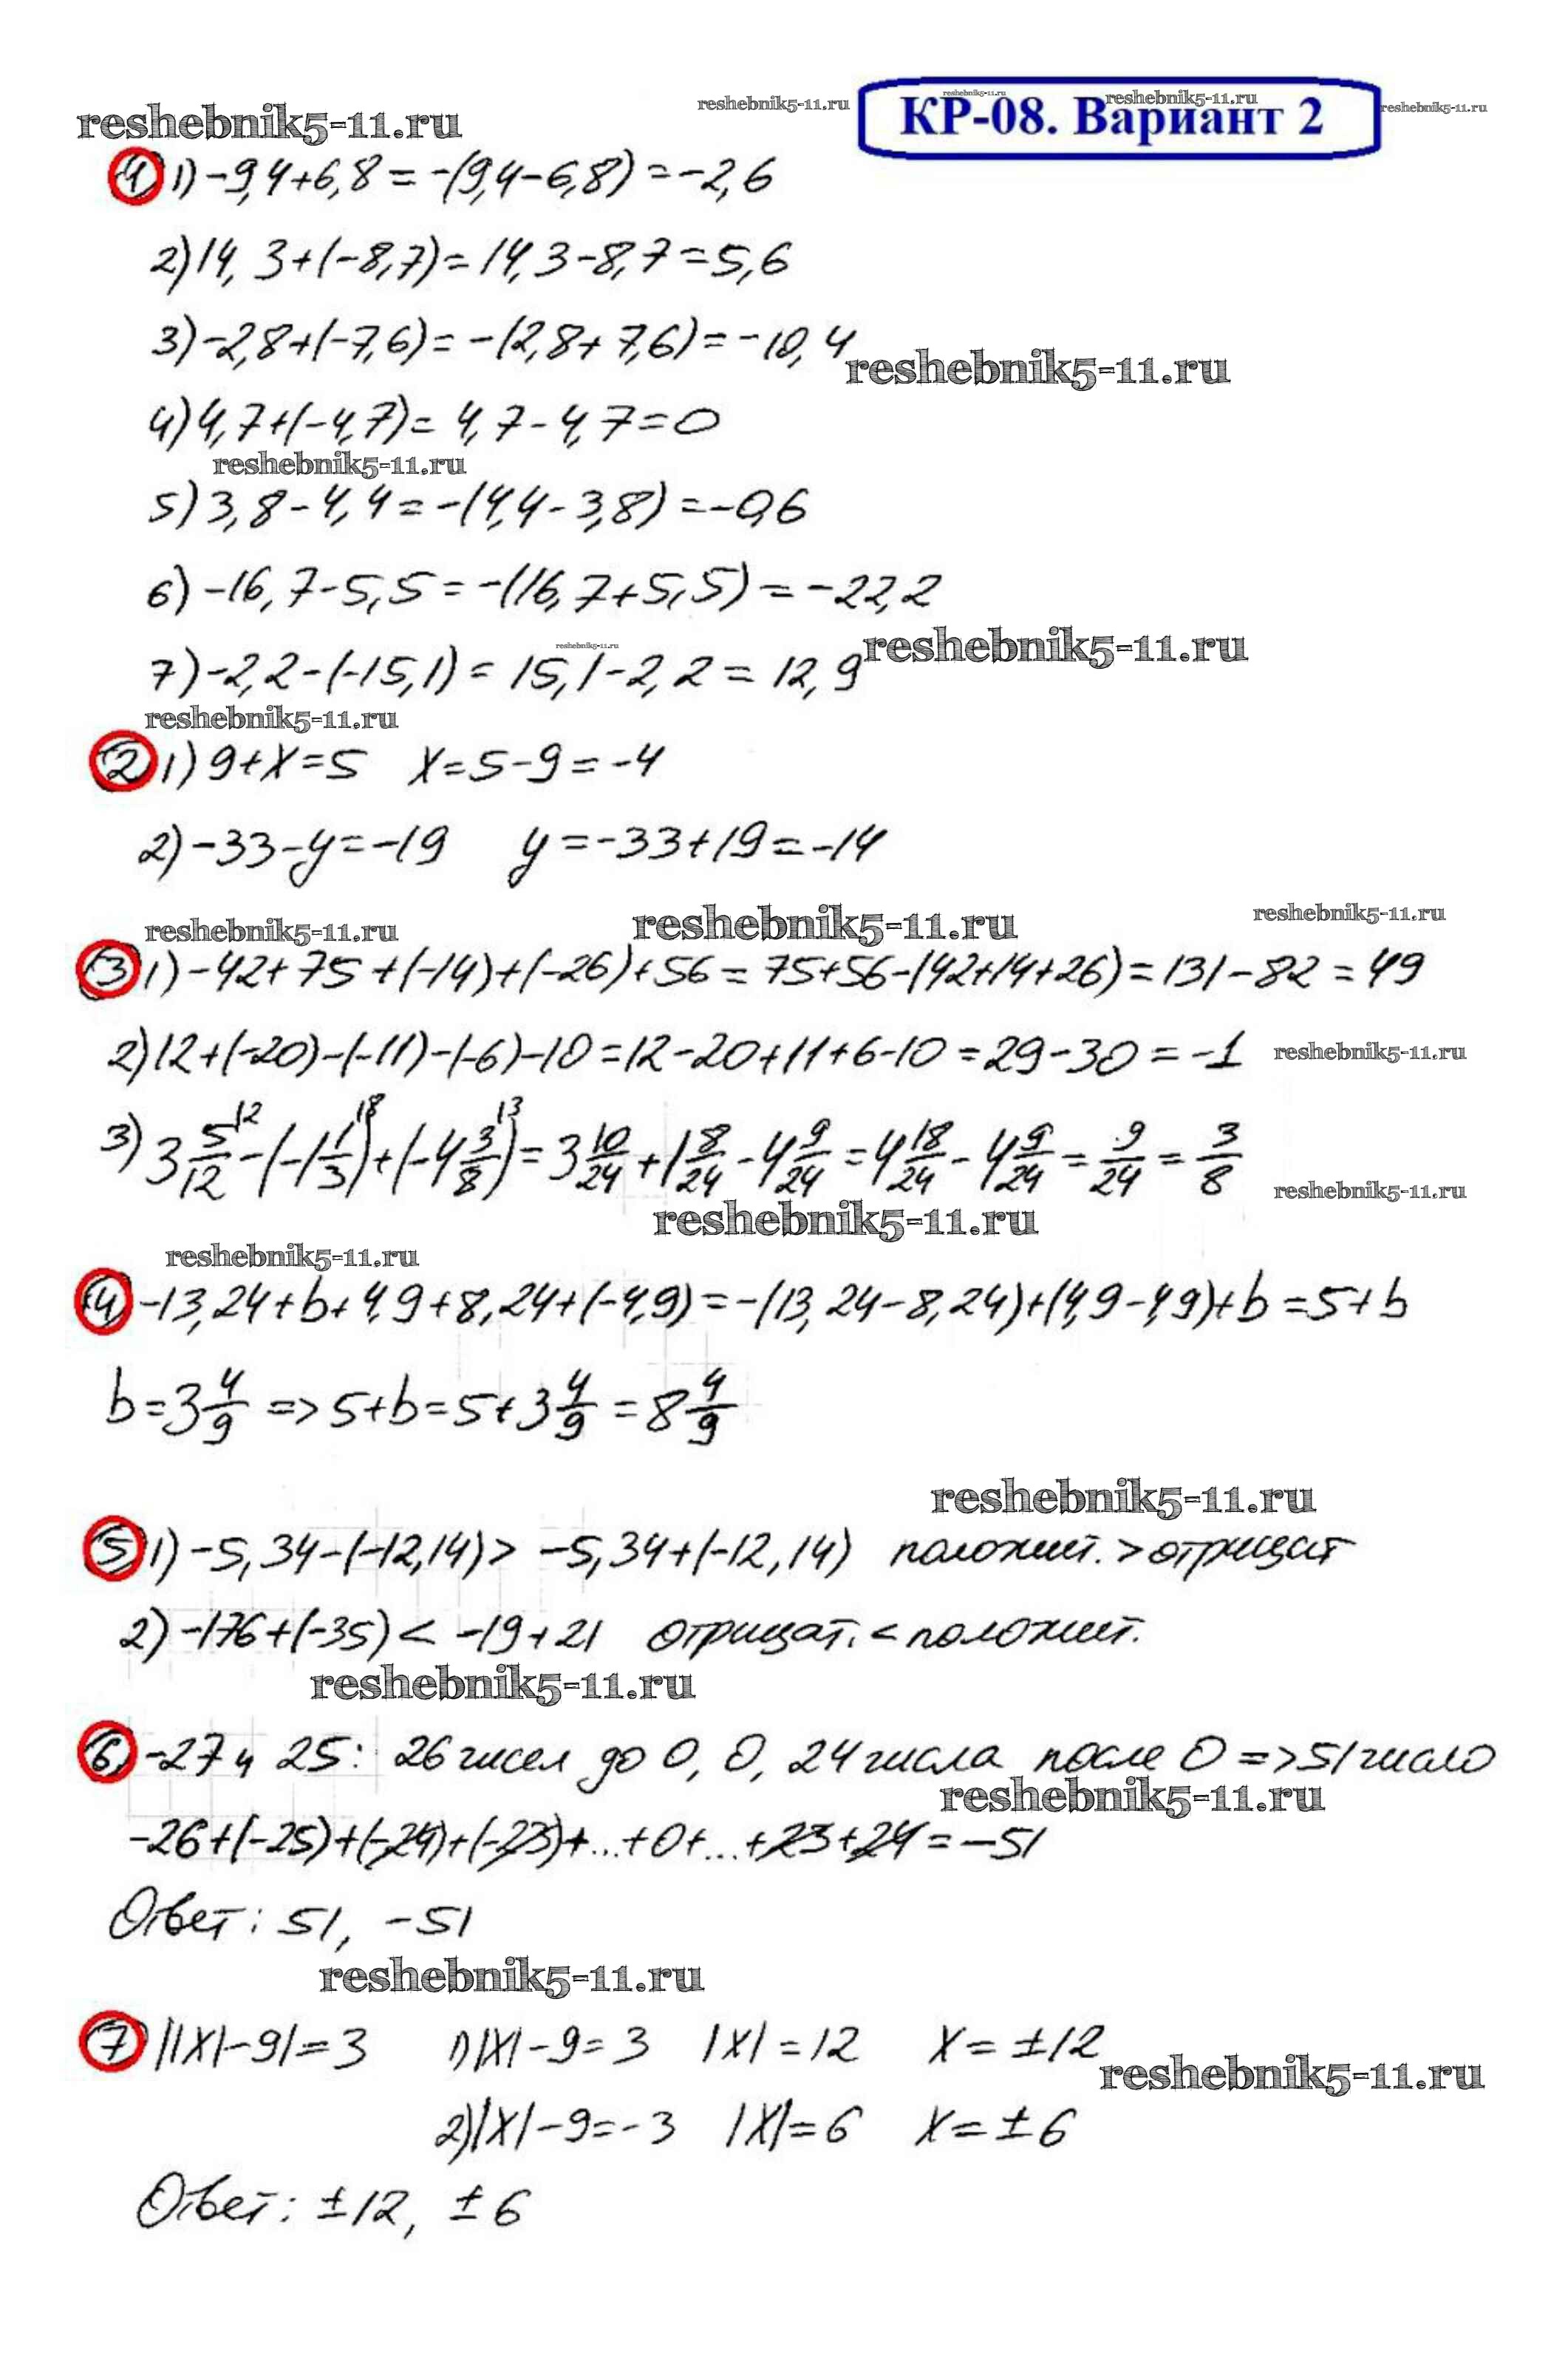 reshebnik5-11.ru reshebnik5-11.ru reshebnik5-11.ru reshebnik5-11.ru
reshebnik5-11.ru КР-08. Вариант 2
1) 1) -9,4+6,8=-(9,4-6,8)=-2,6
2) 14,3+(-8,7)=14,3-8,7=5,6
3) -2,8+(-7,6)=-(2,8+7,6)=-10,4
reshebnik5-11.ru
4) 4,7+(-4,7)=4,7-4,7=0
reshebnik5-11.ru
5) 3,8-4,4=-(4,4-3,8)=-0,6
6) -16,7-5,5=-(16,7+5,5)=-22,2
reshebnik5-11.ru reshebnik5-11.ru
7) -2,2-(-15,1)=15,1-2,2=12,9
reshebnik5-11.ru
2) 1) 9+x=5 x=5-9=-4
2) -33-y=-19 y=-33+19=-14
reshebnik5-11.ru reshebnik5-11.ru reshebnik5-11.ru
3) 1) -42+75+(-14)+(-26)+56=75+56-(42+14+26)=131-82=49
2) 12+(-20)-(-11)-(-6)-10=12-20+11+6-10=29-30=-1 reshebnik5-11.ru
3) 3 5/12 \2 -(-1 1/3 \8)+(-4 3/8 \3)=3 10/24+1 8/24-4 9/24=4 18/24-4 9/24=9/24=3/8
reshebnik5-11.ru reshebnik5-11.ru
reshebnik5-11.ru
4) -13,24+b+4,9+8,24+(-4,9)=-(13,24-8,24)+(4,9-4,9)+b=5+b
b=3 4/9 => 5+b=5+3 4/9=8 4/9
reshebnik5-11.ru
5) 1) -5,34-(-12,14)> -5,34+(-12,14) положит.>отрицат
2) -176+(-35)< -19+21 отрицат.<положит.
reshebnik5-11.ru
6) -27 и 25: 26 чисел до 0, 0, 24 числа после 0 => 51 число
reshebnik5-11.ru
-26+(-25)+(-24)+(-23)+...+0+...+23+24=-51
Ответ: 51, -51
reshebnik5-11.ru
7) ||x|-9|=3 1) |x|-9=3 |x|=12 x=±12
reshebnik5-11.ru
2) |x|-9=-3 |x|=6 x=±6
Ответ: ±12, ±6